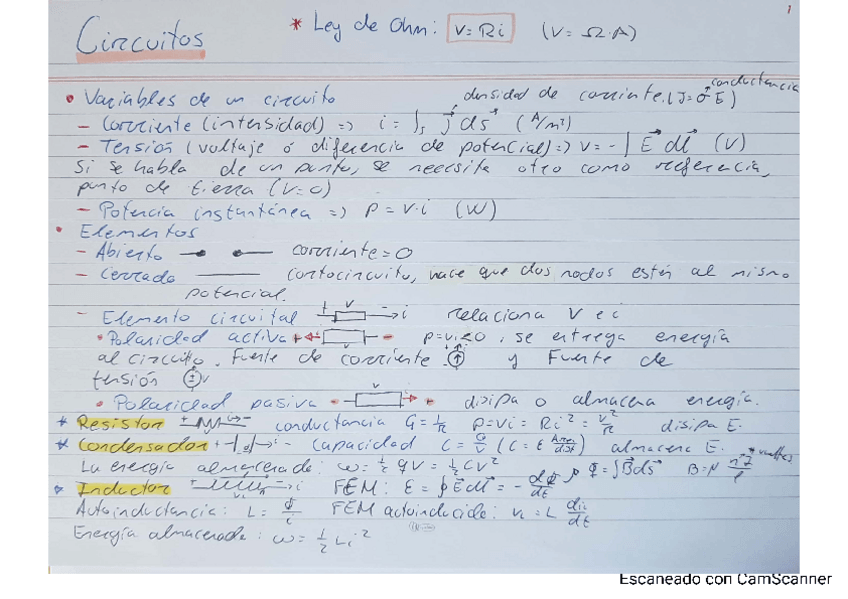 1
Circuitos * Ley de Ohm: V=Ri (V = Ω·A)
• Variables de un circuito densidad de corriente. (J=σE) conductancia
– Corriente (intensidad) => i = ∫s J ds (A/m²)
– Tensión (voltaje o diferencia de potencial) => V = -∫ E dl (V)
Si se habla de un punto, se necesita otro como referencia,
punto de tierra (V=0)
– Potencia instantánea => P = V·i (W)
• Elementos
– Abierto corriente = 0
– Cerrado cortocircuito, hace que dos nodos estén al mismo
potencial.
– Elemento circuital + V - i relaciona V e i
• Polaridad activa + - P=Vi<0, se entrega energía
al circuito. Fuente de corriente y Fuente de
tensión V
• Polaridad pasiva - V + disipa o almacena energía.
* Resistor + - i conductancia G = 1/R P = Vi = Ri² = V²/R disipa E.
* Condensador + - i capacidad C = Q/V (C = ε Area/dist) almacena E.
La energía almacenada: w = 1/2 qV = 1/2 CV² Φ = ∫B ds B = μ
* Inductor i FEM: ε = ∮E dl = - dΦ/dt
Autoinductancia: L = Φ/i FEM autoinducida: VL = L diL/dt
Energía almacenada: w = 1/2 Li²
Escaneado con CamScanner